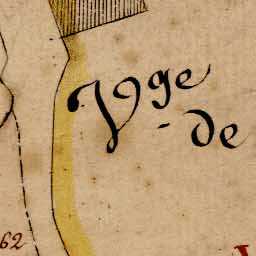 Vge
- de
62